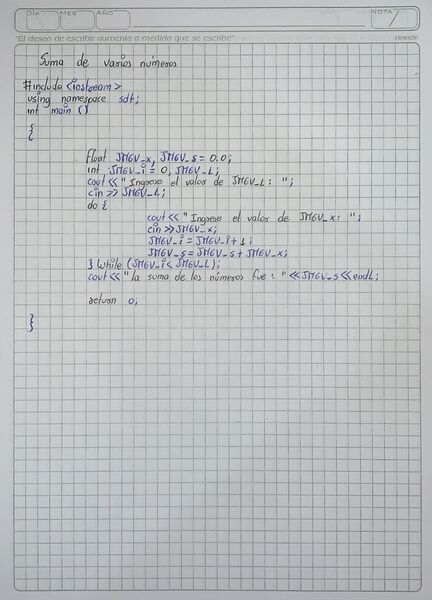 DÍA MES AÑO NOTA
"El deseo de escribir aumenta a medida que se escribe" Horacio
Suma de varios números
#include <iostream>
using namespace sdt;
int main ()
{
float JMGV_x, JMGV_s = 0.0;
int JMGV_i = 0, JMGV_L;
cout << "Ingrese el valor de JMGV_L: ";
cin >> JMGV_L;
do {
cout << "Ingrese el valor de JMGV_x: ";
cin >> JMGV_x;
JMGV_i = JMGV_i + 1;
JMGV_s = JMGV_s + JMGV_x;
} while (JMGV_i < JMGV_L);
cout << "la suma de los números fue: " << JMGV_s << endl;
return 0;
}